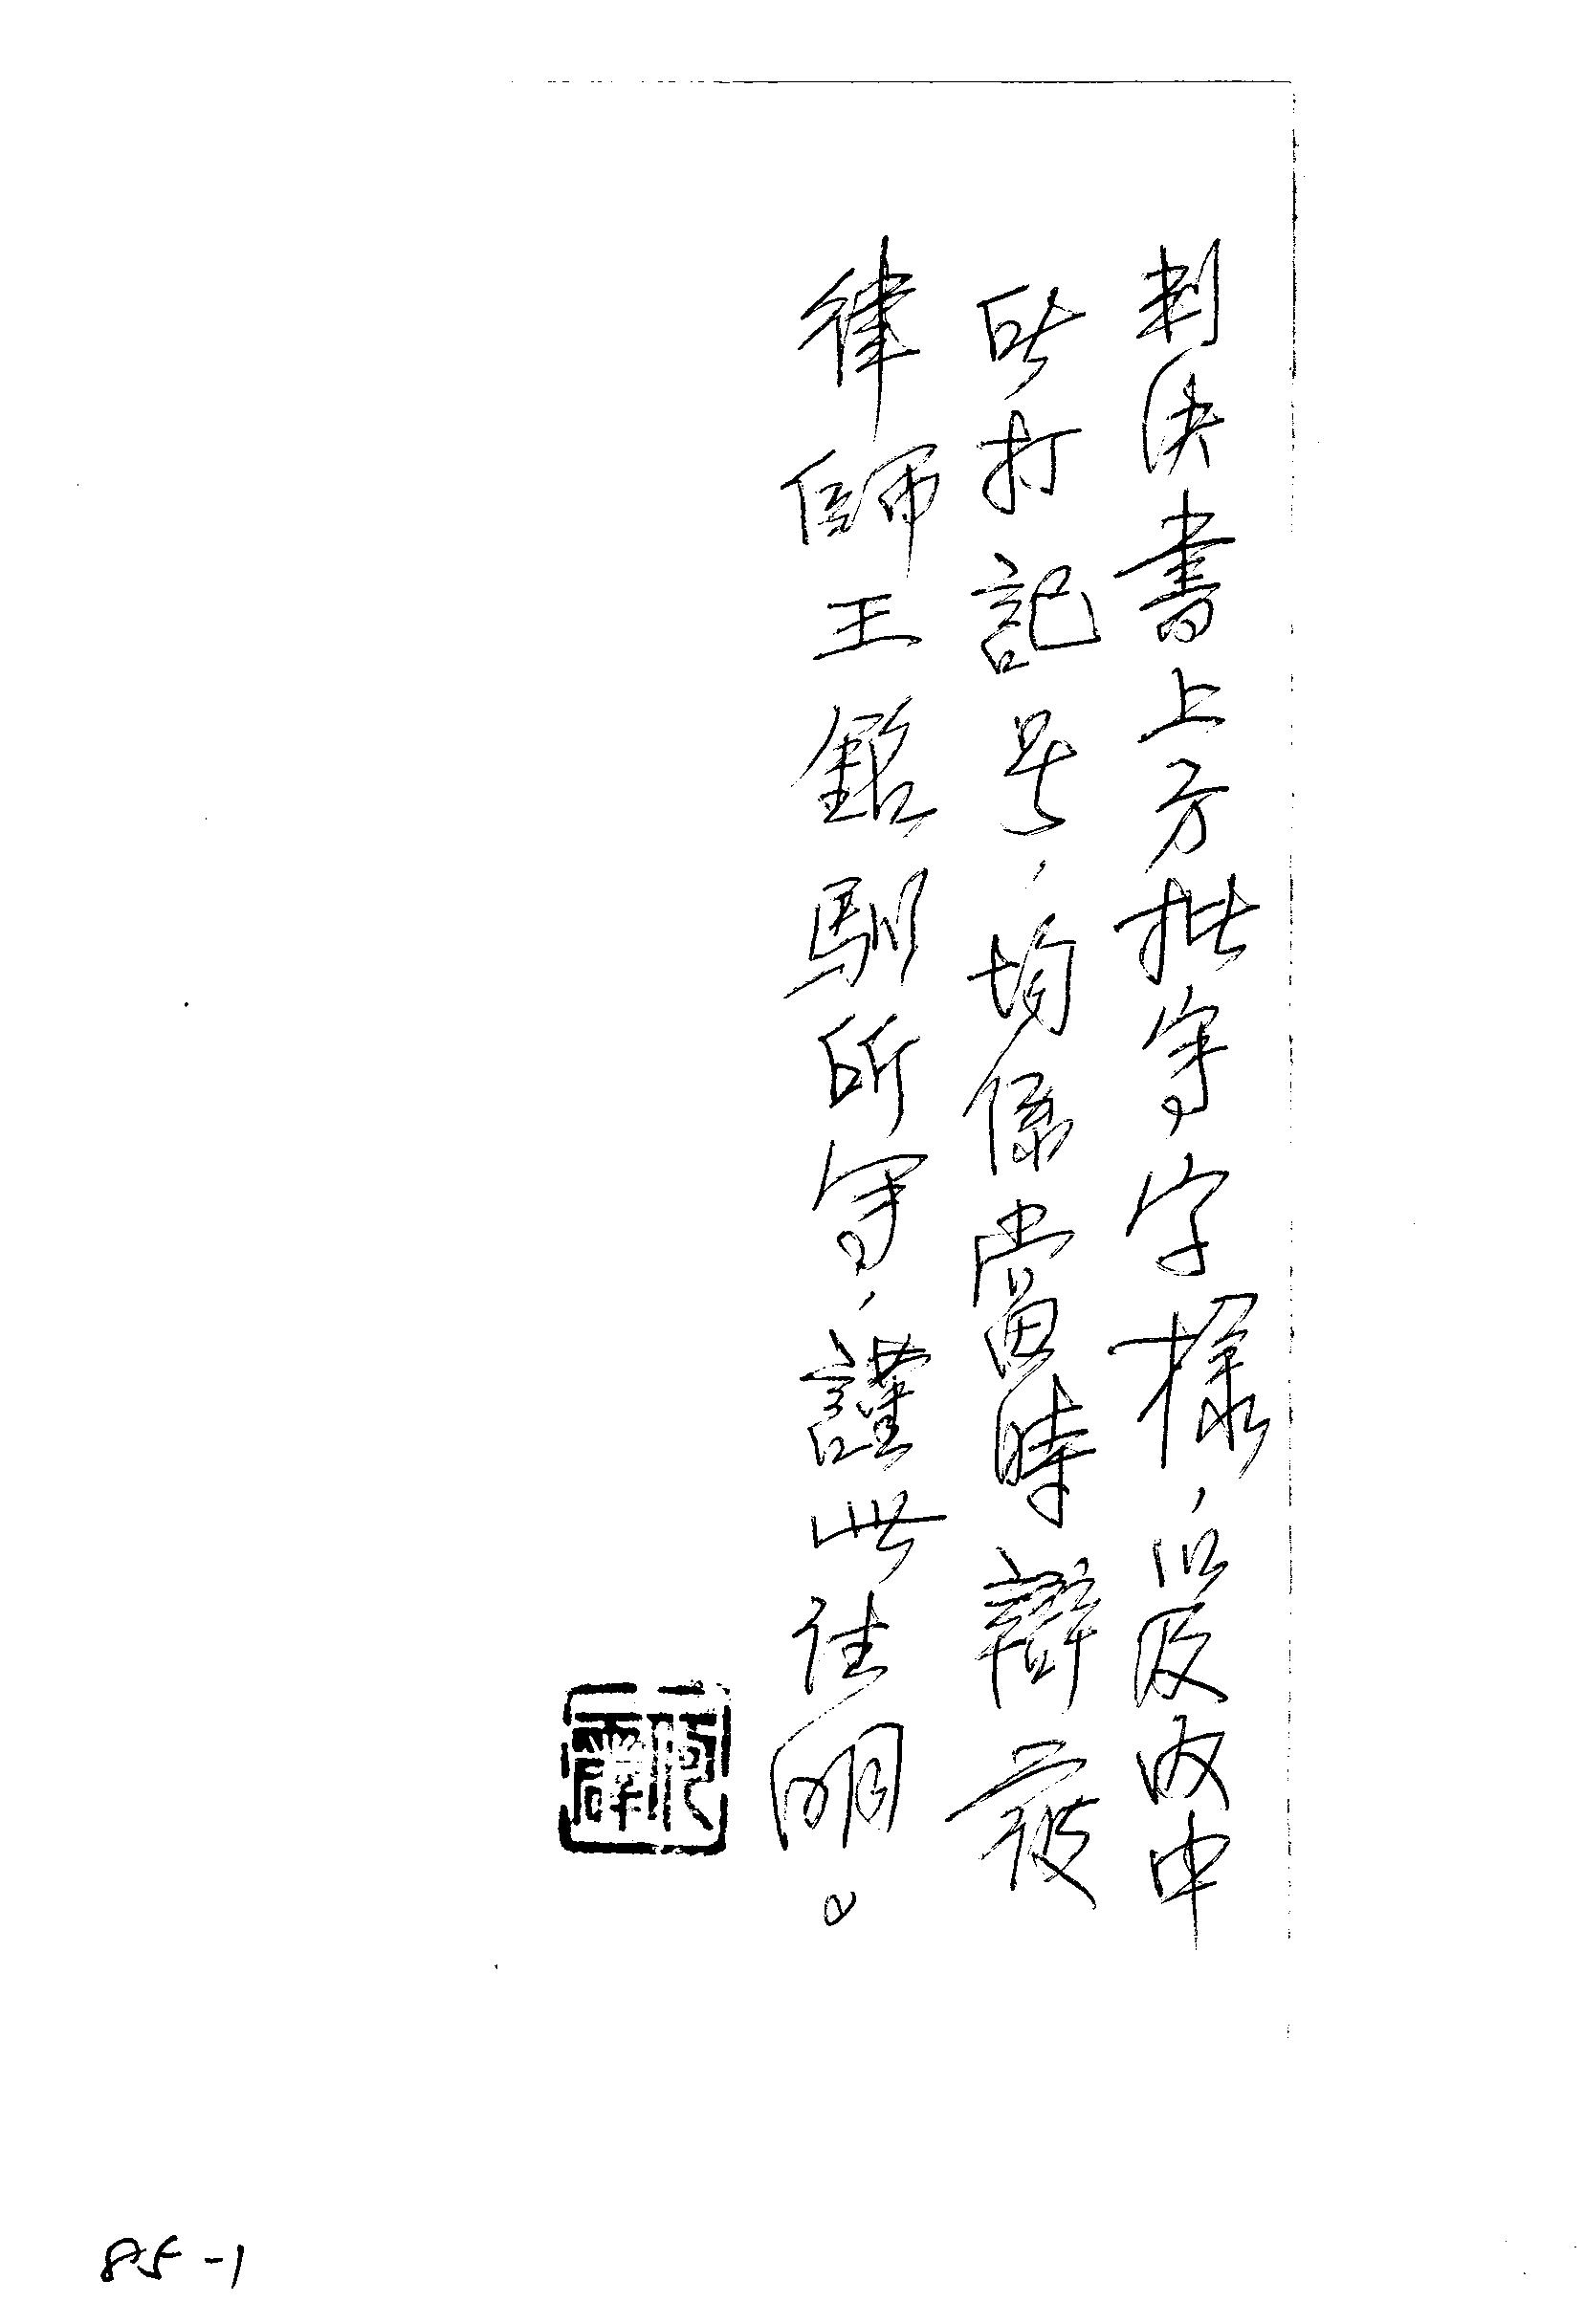 判決書上方批寫字樣，以及內中
所打記号，均係當時辯護
律師王銘馴所寫，謹此注明。
85-1